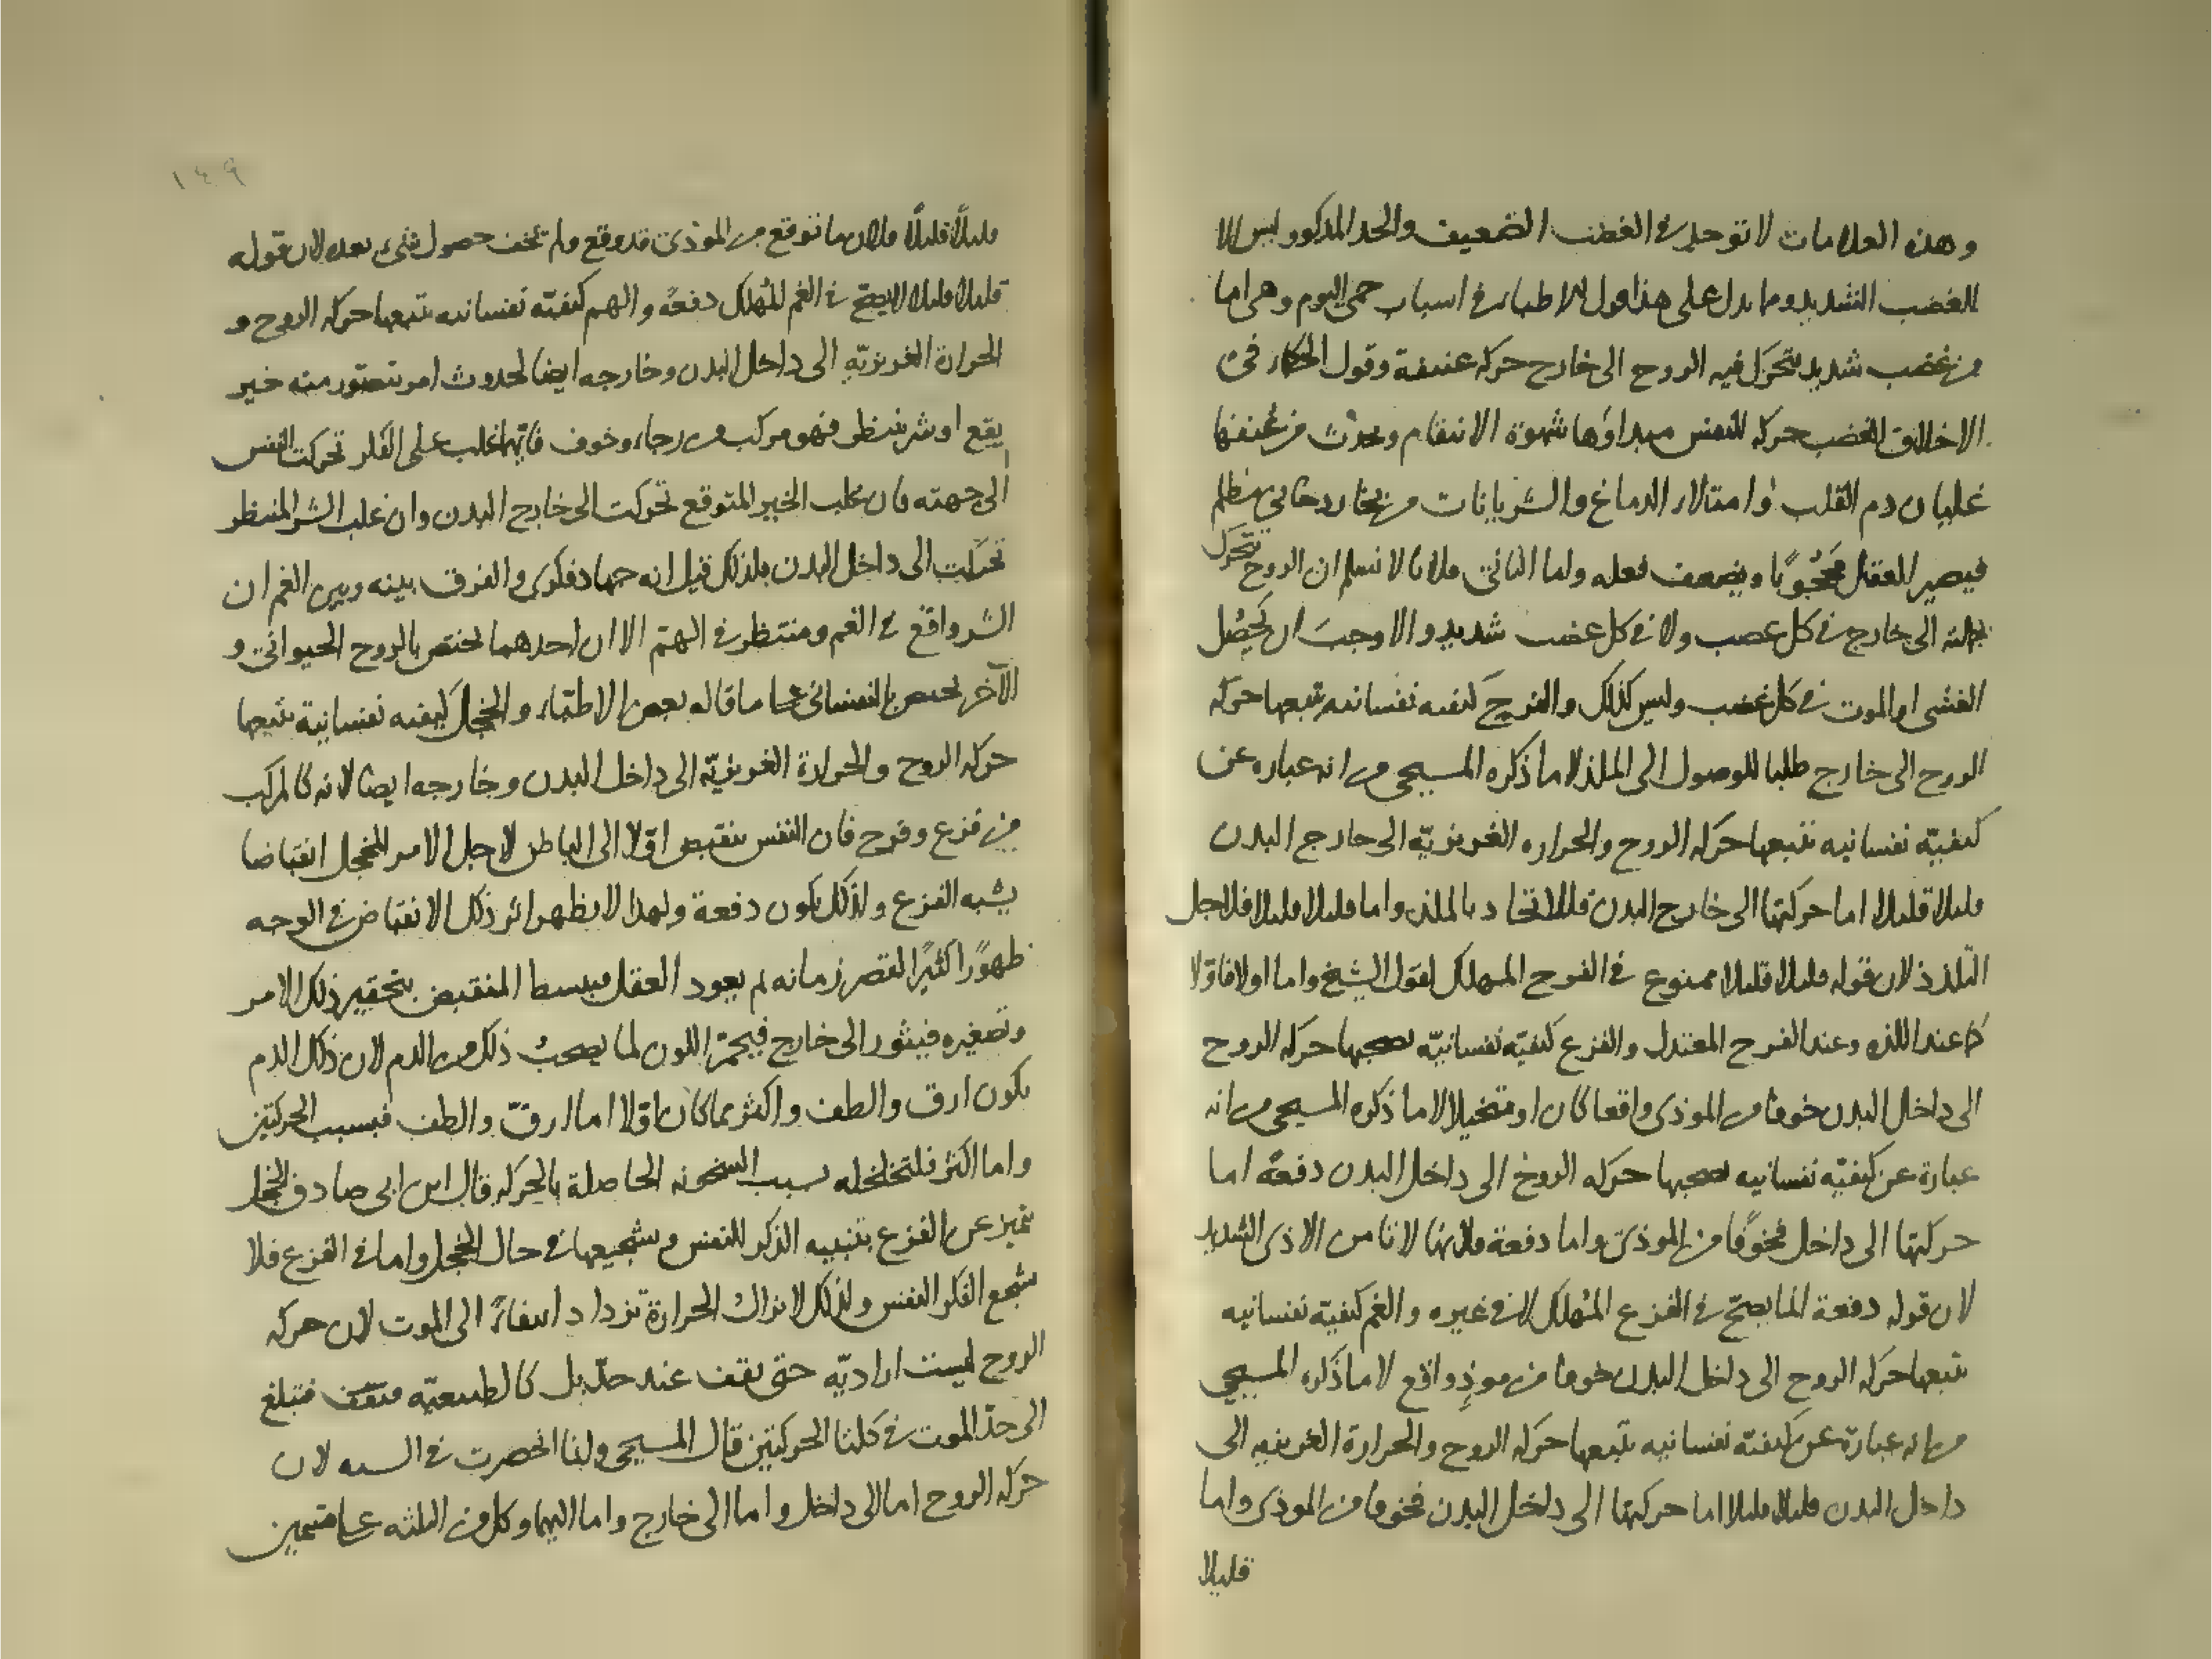 وهذه العلامات لا توجد في الغضب الضعيف والحد المذكور ليس الا
للغضب الشديد ومما يدل على هذا قول الاطباء في اسباب حمى اليوم وهي اما
من غضب شديد يتحرك فيه الروح الى خارج حركة عنيفة وقول الحكماء في
الاخلاق الغضب حركة للنفس مبداؤها شهوة الانتقام ويحدث من عنفها
غليان دم القلب وامتلاء الدماغ والشريانات من بخار دخاني مظلم
فيصير العقل محجوبًا ويضعف فعله واما الثاني فلانا لا نسلم ان الروح تتحرك
بجملته الى خارج في كل غضب ولا في كل غضب شديد والا وجب ان يحصل
الغشى او الموت في كل غضب وليس كذلك والفرح كيفية نفسانية يتبعها حركة
الروح الى خارج طلبا للوصول الى الملذ لا ما ذكره المسيحي من انه عبارة عن
كيفيّة نفسانيه تتبعها حركة الروح والحراره الغريزيّة الى خارج البدن
قليلا قليلا اما حركتها الى خارج البدن فللاتحاد بالملذ واما قليلا قليلا فلاجل
التلذذ لان قوله قليلا قليلا ممنوع في الفرح المهلك لقول الشيخ واما اولا فاولا
كما عند اللذه وعند الفرح المعتدل والفزع كيفيّة نفسانيّه يصحبها حركة الروح
الى داخل البدن خوفا من الموذى واقعا كان او متخيلا لا ما ذكره المسيحي من انه
عبارة عن كيفيّة نفسانيه يصحبها حركه الروح الى داخل البدن دفعةً اما
حركتها الى داخل فخوفًا من الموذى واما دفعة فلانها لا تامن الاذى الشديد
لان قوله دفعة انما يصح في الفزع المهلك لا في غيره والغم كيفية نفسانيه
تتبعها حركة الروح الى داخل البدن خوفا من موذٍ واقع لا ما ذكره المسيحي
من انه عبارة عن كيفية نفسانيه تتبعها حركة الروح والحرارة الغريزيه الى
داخل البدن قليلا قليلا اما حركتها الى داخل البدن فخوفا من الموذى واما
قليلا
١٤٩
قليلاً قليلًا فلان ما توقع من الموذى قد وقع ولم تخف حصول شيء بعده لان قوله
قليلا قليلا لا يصح في الغم المهلك دفعة والهم كيفيّة نفسانيه تتبعها حركة الروح و
الحرارة الغريزيّة الى داخل البدن وخارجه ايضا لحدوث امر يتصور منه خير
يقع او شر ينتظر فهو مركب من رجاء وخوف فايهما غلب على الفكر تحركت النفس
الى جهته فان غلب الخير المتوقع تحركت الى خارج البدن وان غلب الشر المنتظر
تحركت الى داخل البدن فلذلك قيل انه جهاد فكرى والفرق بينه وبين الغم ان
الشر واقع في الغم ومنتظر في الهم الا ان احدهما يختص بالروح الحيواني و
الآخر يختص بالنفساني على ما قاله بعض الاطباء والخجل كيفيه نفسانية تتبعها
حركة الروح والحرارة الغريزيّة الى داخل البدن وخارجه ايضا لانه كالمركب
من فزع وفرح فان النفس تنقبض اولا الى الباطن لاجل الامر المخجل انقباضا
يشبه الفزع ولذلك يكون دفعة ولهذا لا يظهر اثر ذلك الانقباض في الوجه
ظهورًا كثيرًا لقصر زمانه ثم يعود العقل فيبسط المنقبض بتحقير ذلك الامر
وتصغيره فيثور الى خارج فيحمرّ اللون لما يصحب ذلك من الدم لان ذلك الدم
يكون ارق والطف واكثر مما كان اولا اما ارقّ والطف فبسبب الحركتين
واما اكثر فلتخلخله بسبب السخونه الحاصلة بالحركة قال ابن ابي صادق الخجل
يتميز عن الفزع بتنبيه الذكر للنفس وتشجيعها في حال الخجل واما في الفزع فلا
يشجع الفكر النفس ولذلك لا تزال الحرارة تزداد انقباضًا الى الموت لان حركة
الروح ليست اراديّه حتى تقف عند حدّ بل كالطبيعيّه فتبلغ
الى حدّ الموت في كلتا الحركتين قال المسيحي وانما انحصرت في الستة لان
حركة الروح اما الى داخل واما الى خارج واما اليهما وكل من الثلثه على قسمين